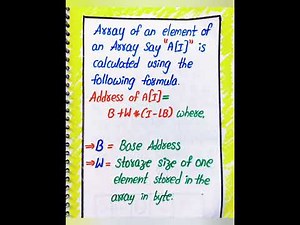 Array of an element of
an Array Say "A[I]" is
calculated using the
following formula.
Address of A[I]=
B+W*(I-LB) where,
⇒B = Base Address
⇒W = Storage size of one
element stored in the
array in byte.